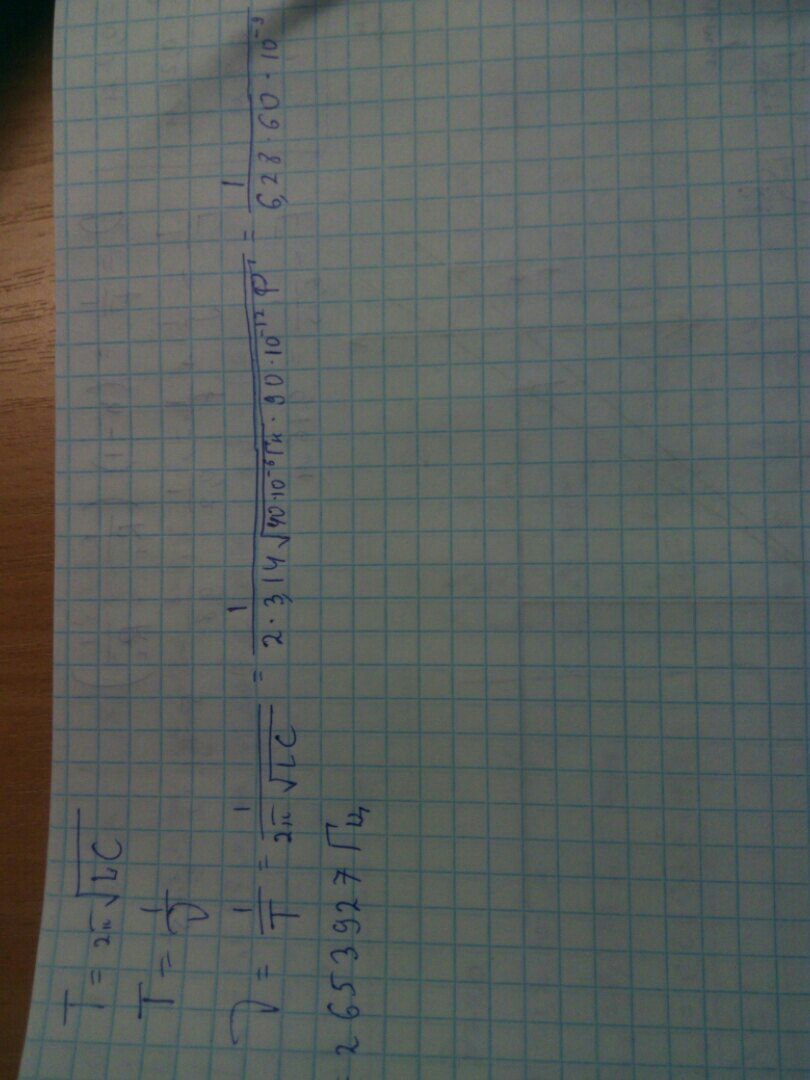 T = 2π√LC
T = 1/ν
ν = 1/T = 1/2π√LC = 1/2·3,14√40·10⁻⁶Гн·90·10⁻¹²Ф = 1/6,28·60·10⁻⁹
= 2653927 Гц